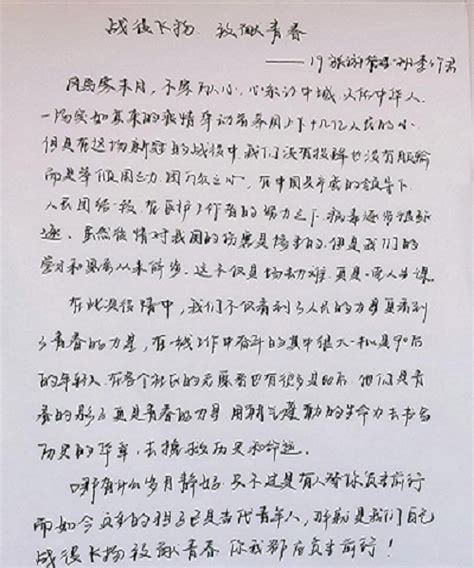 战疫飞扬 致敬青春
风雨袭来月,不 心 中城,
一场突如其来的疫情牵动着举国上下十几亿人民的心
但是在这场新冠的战役中,我们没有投降也没有服输
而是举 国之力,团万众之心,在中国共产党的领导下
人民团结一致,在医护工作者的努力之下,病毒逐步被驱
逐。虽然疫情对我国的伤害是惨重的,但是我们的
学习和 从未停步。这不仅是场劫难,更是一 课。
在此次疫情中,我们不仅看到了人民的力量更看到
了青春的力量,在一线工作中奋斗的其中很大一批是90后
的年轻人,在各个社区的志愿者也有很多是00后,他们是青
春的影子更是青春的力量,用朝气蓬勃的生命力去书写
历史的华章,去 历史和命运。
哪有什么岁月静好,只不过是有人替你负重前行
而如今 的担子已是当代青年人,那就是我们自己
战疫飞扬 致敬青春 你我都应负重前行!